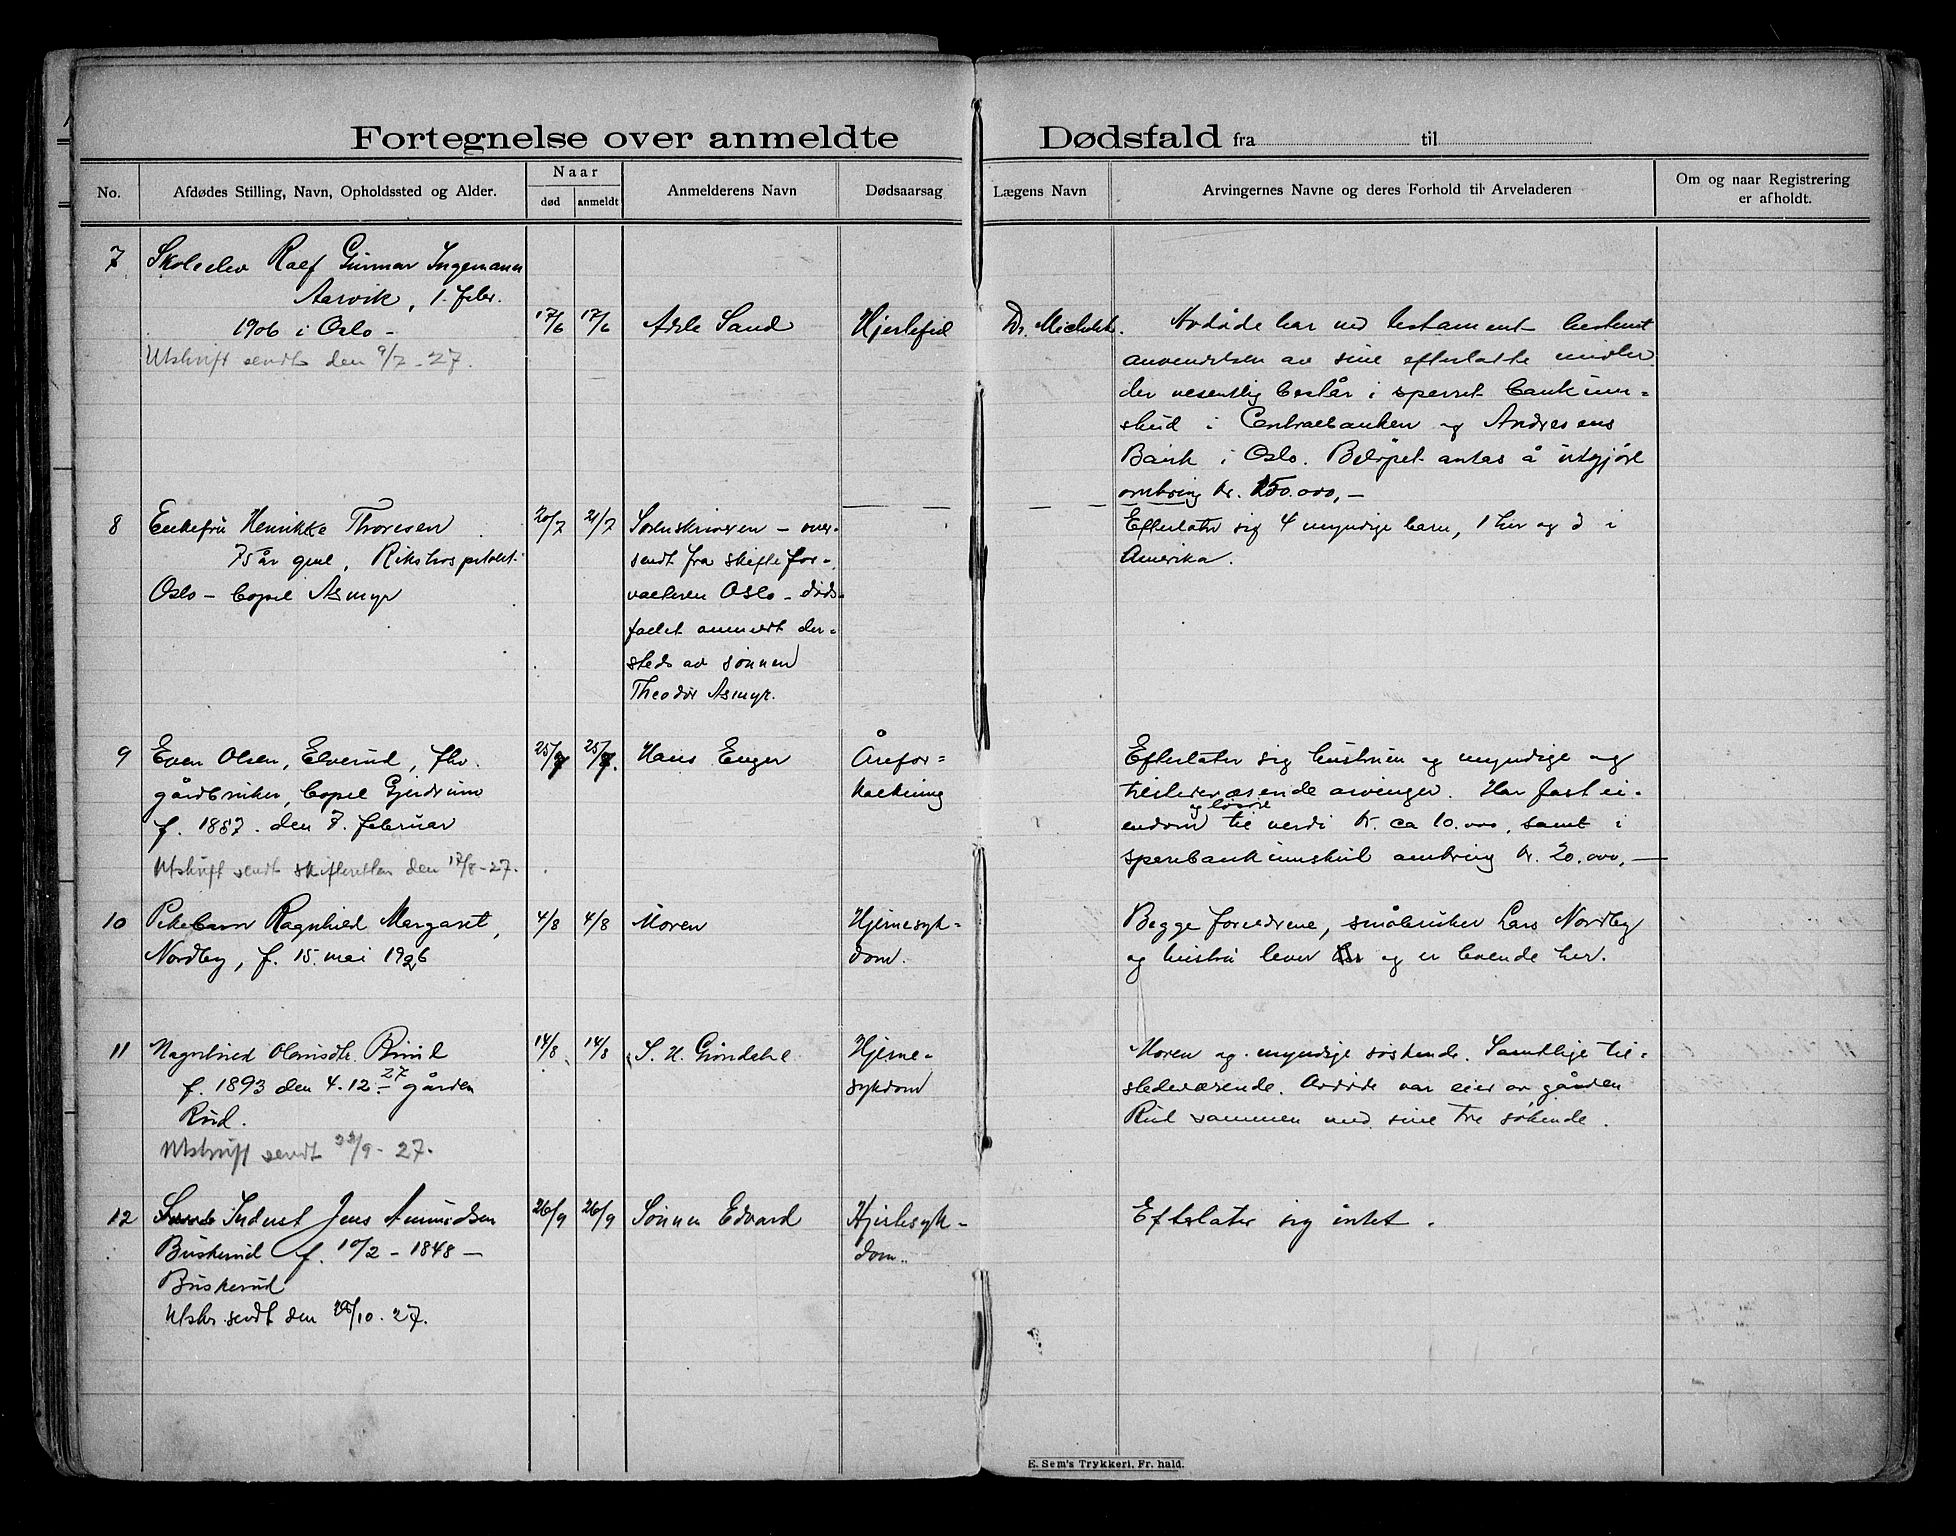 Fortegnelse over anmeldte Dødsfald fra til
No.
Afdødes Stilling, Navn, Opholdssted og Alder.
Naar
død
anmeldt
Anmelderens Navn
Dødsaarsag
Lægens Navn
Arvingernes Navne og deres Forhold til Arveladeren
Om og naar Registrering
er afholdt.
7
Skoleelev Ralf Gunnar Ingemann
Aarvik, 1. febr.
1906 i Oslo -
Utskrift sendt den 9/7 - 27.
17/6
17/6
Adele Sand
Hjertefeil
Dr. Michelet.
Avdøde har ved testament bestemt
anvendelsen av sine efterlatte midler
der vesentlig består i sperret bankinn-
skud i Centralbanken og Andresens
Bank i Oslo. Beløpet antas å utgjøre
omkring kr. 150.000,-
8
Enkefru Henrikke Thoresen
75 år gml, Rikshospitalet
Oslo - bopel Asmyr
20/7
21/7
Sorenskriveren - over-
sendt fra skiftefor-
valteren Oslo - døds-
fallet anmeldt der-
steds av sønnen
Theodor Asmyr.
Efterlater sig 4 myndige barn, 1 her og 3 i
Amerika.
9
Even Olsen, Elverud, fhv.
gårdbruker, bopel Gjerdrum
f. 1857. den 7. februar
Utskrift sendt skifteretten den 17/8 - 27.
25/7
25/7.
Hans Enger
Årefor-
kalkning
Efterlater sig hustruen og myndige og
tilstedeværende arvinger. Har fast ei-
og løsøre
endom til verdi kr. ca 10.000, samt i
sparebankinnskud omkring kr. 20.000,-
10
Pikebarn Ragnhild Margaret,
Nordby, f. 15. mai 1926
4/8
4/8
Moren
Hjernesyk-
dom.
Begge foreldrene, småbruker Lars Nordby
og hustru lever og er boende her.
11
Magnhild Olavsdtr. Rud
f. 1893 den 4.12 - 27 gården
Rud.
Utskrift sendt 22/9 - 27.
14/8
14/8
S. H. Grøndahl
Hjerne-
sykdom
Moren og myndige søskende. Samtlige til-
stedeværende. Avdøde var eier av gården
Rud sammen med sine tre søkende.
12
Inderst Jens Amundsen
Buskerud f. 10/2 - 1848 -
Buskerud
Utskr. sendt den 28/10. 27.
26/9
26/9
Sønnen Edvard
Hjertesyk-
dom.
Efterlater sig intet.
E. Sem's Trykkeri, Fr. hald.